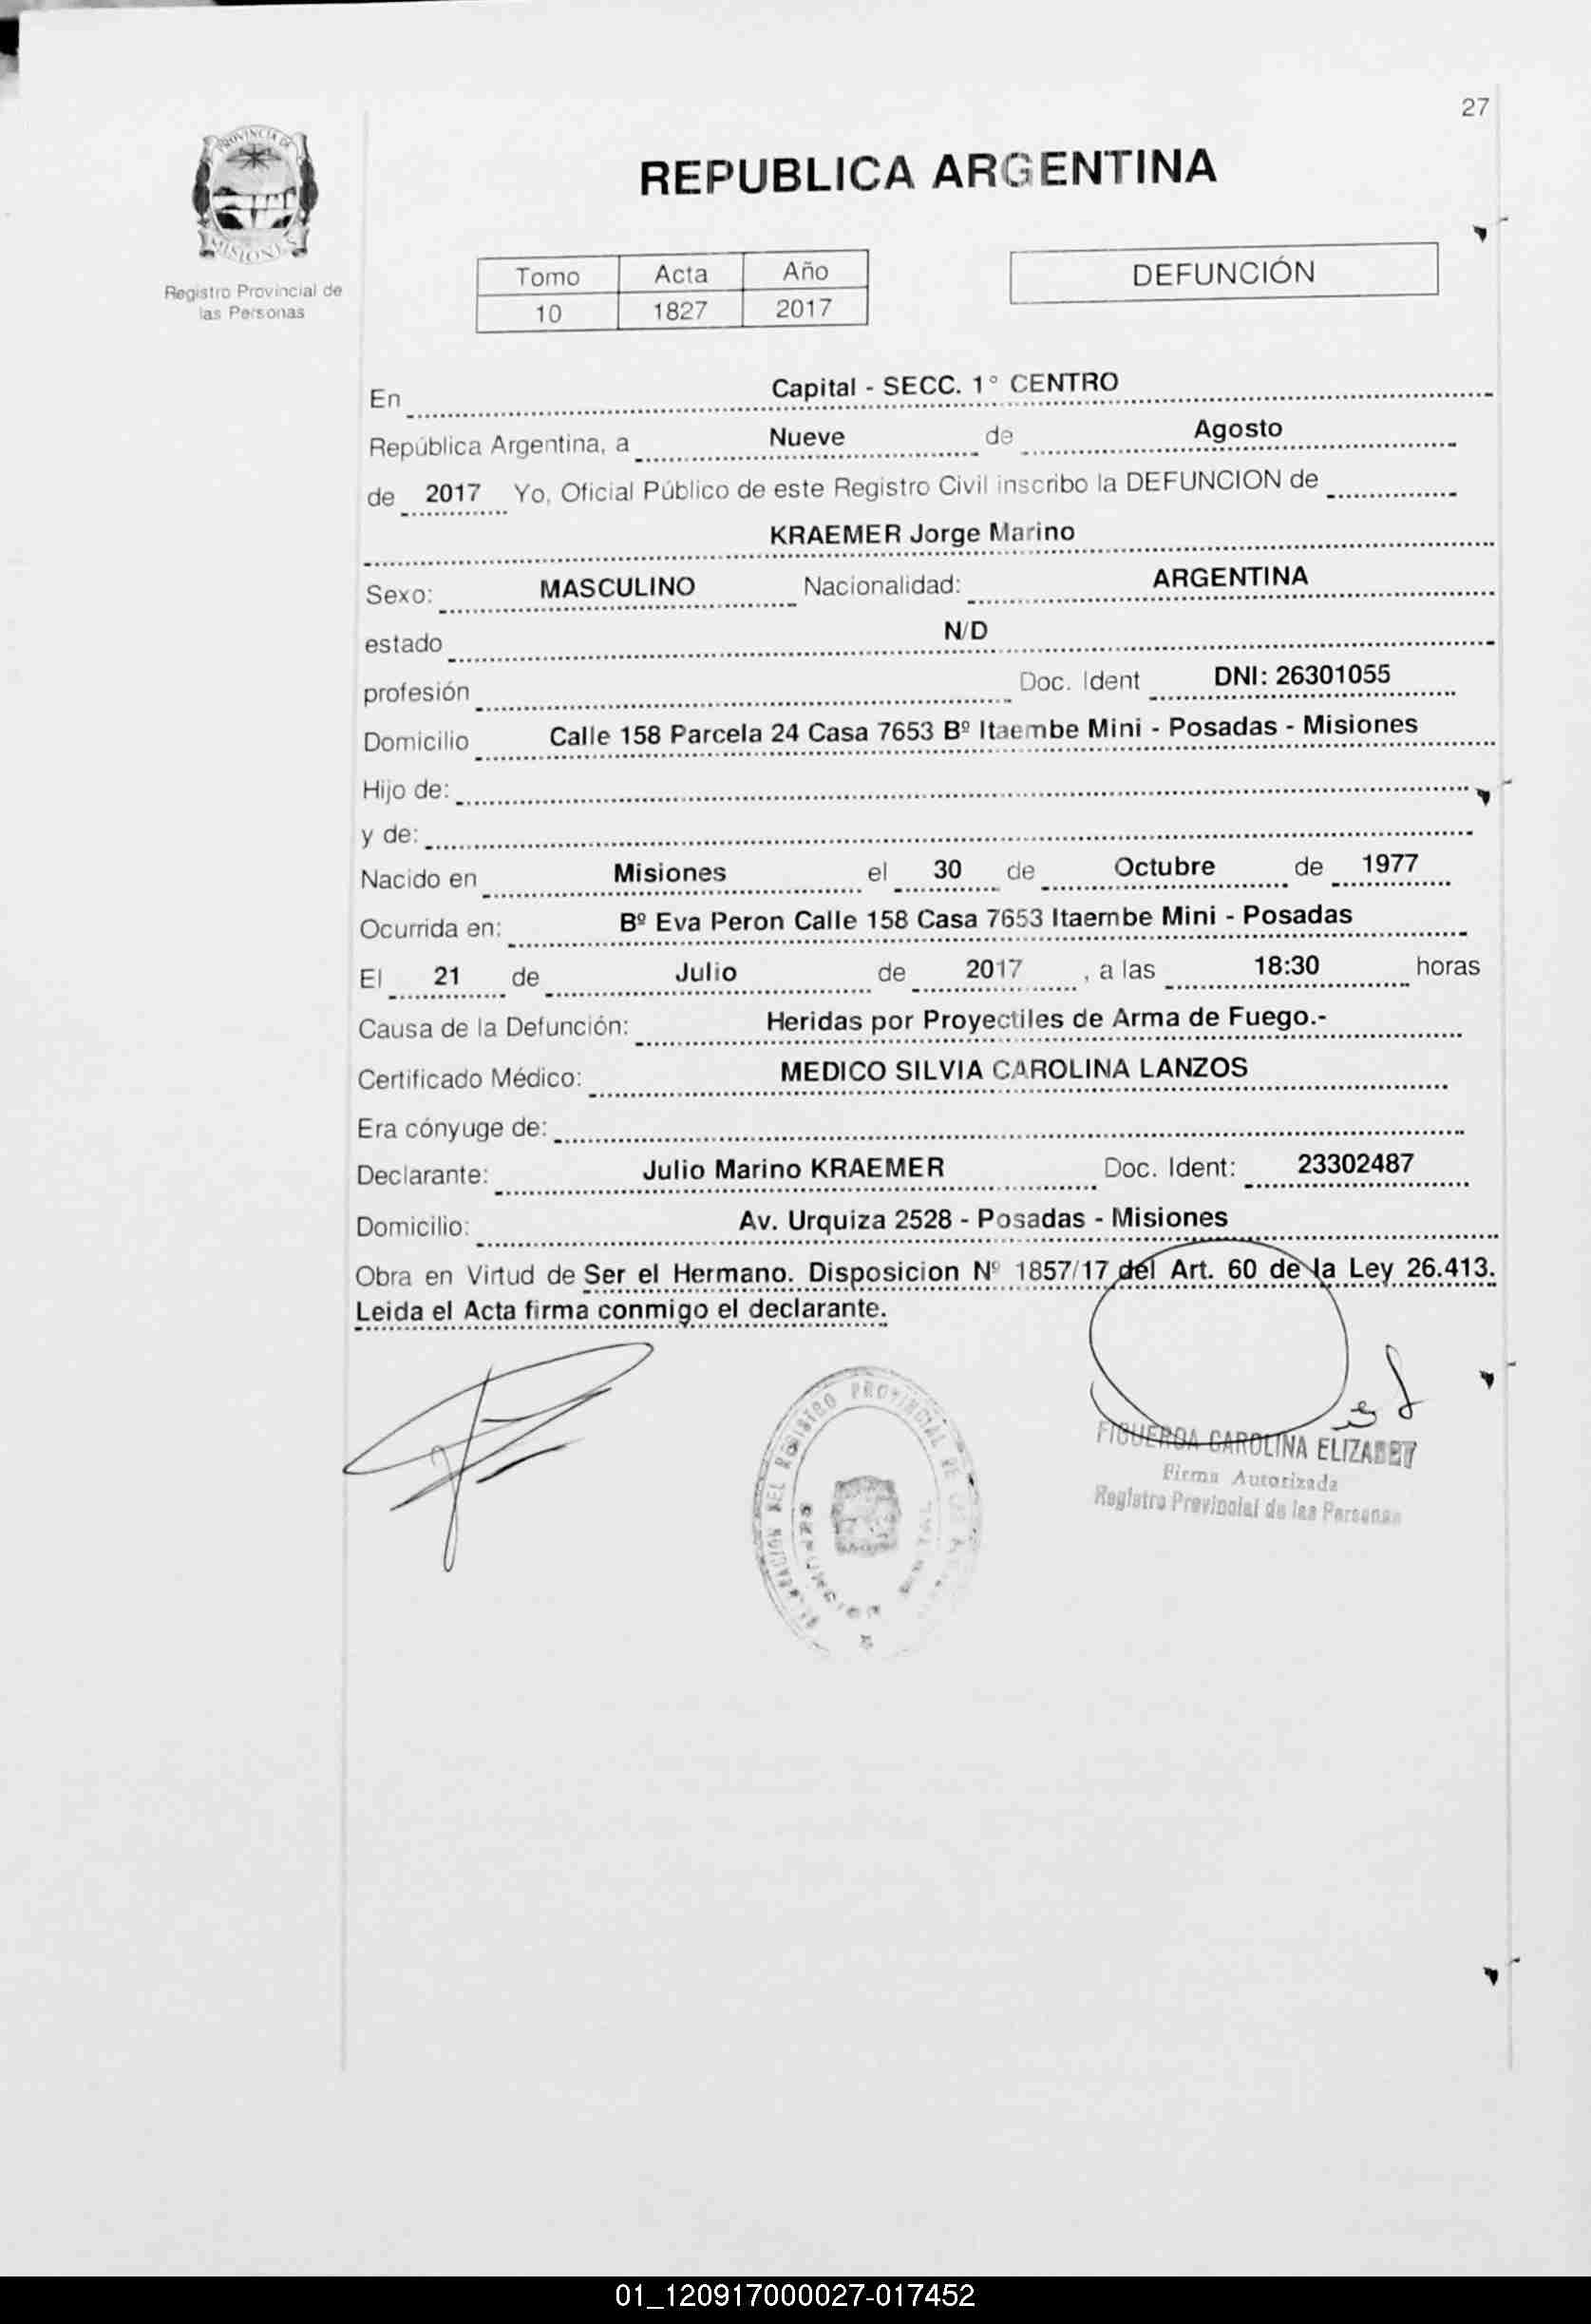 27
PROVINCIA DE
MISIONES
Registro Provincial de
las Personas
REPUBLICA ARGENTINA
Tomo Acta Año
10 1827 2017
DEFUNCIÓN
En Capital - SECC. 1° CENTRO
República Argentina, a Nueve de Agosto
de 2017 Yo, Oficial Público de este Registro Civil inscribo la DEFUNCION de
KRAEMER Jorge Marino
Sexo: MASCULINO Nacionalidad: ARGENTINA
estado N/D
profesión Doc. Ident DNI: 26301055
Domicilio Calle 158 Parcela 24 Casa 7653 Bº Itaembe Mini - Posadas - Misiones
Hijo de:
y de:
Nacido en Misiones el 30 de Octubre de 1977
Ocurrida en: Bº Eva Peron Calle 158 Casa 7653 Itaembe Mini - Posadas
El 21 de Julio de 2017 , a las 18:30 horas
Causa de la Defunción: Heridas por Proyectiles de Arma de Fuego.-
Certificado Médico: MEDICO SILVIA CAROLINA LANZOS
Era cónyuge de:
Declarante: Julio Marino KRAEMER Doc. Ident: 23302487
Domicilio: Av. Urquiza 2528 - Posadas - Misiones
Obra en Virtud de Ser el Hermano. Disposicion Nº 1857/17 del Art. 60 de la Ley 26.413.
Leida el Acta firma conmigo el declarante.
REGISTRO PROVINCIAL DE LAS
FIGUEROA CAROLINA ELIZABET
Firma Autorizada
Registro Provincial de las Personas
01_120917000027-017452